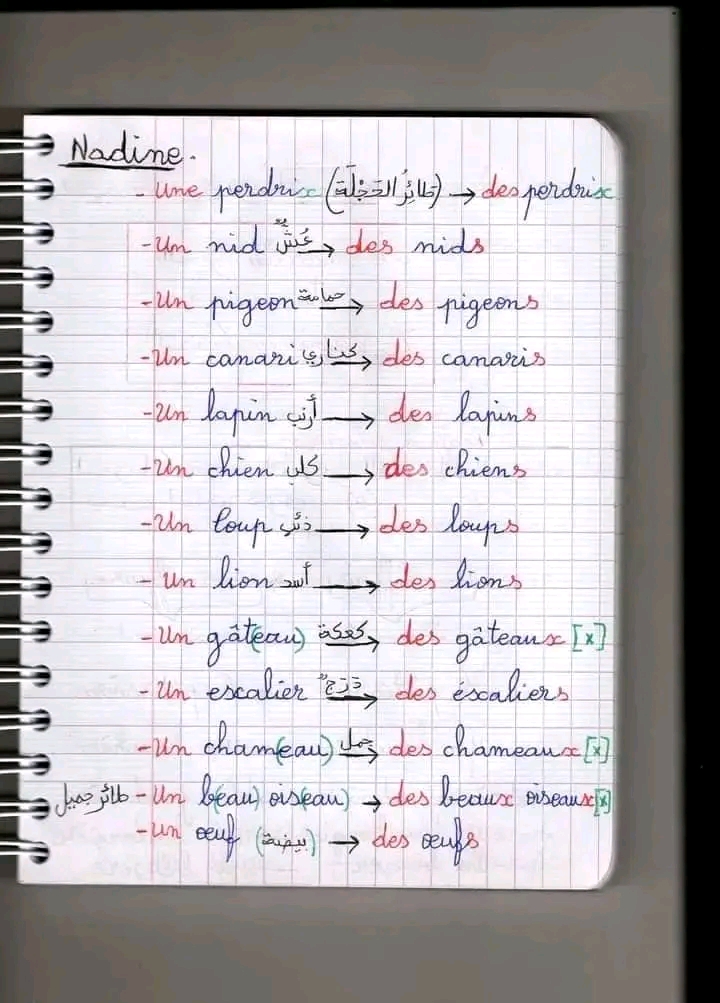 Nadine.
- Une perdrix (طائِرُ الحَجْلَة) → des perdrix
- Un nid عُشٌّ → des nids
- Un pigeon حمامة → des pigeons
- Un canari كناري → des canaris
- Un lapin أرنب → des lapins
- Un chien كلب → des chiens
- Un loup ذئب → des loups
- Un lion أسد → des lions
- Un gât(eau) كعكة → des gâteaux [x]
- Un escalier دَرَجٌ → des éscaliers
- Un cham(eau) جمل → des chameaux [x]
طائر جميل - Un b(eau) ois(eau) → des beaux oiseaux [x]
- Un œuf (بيضة) → des œufs